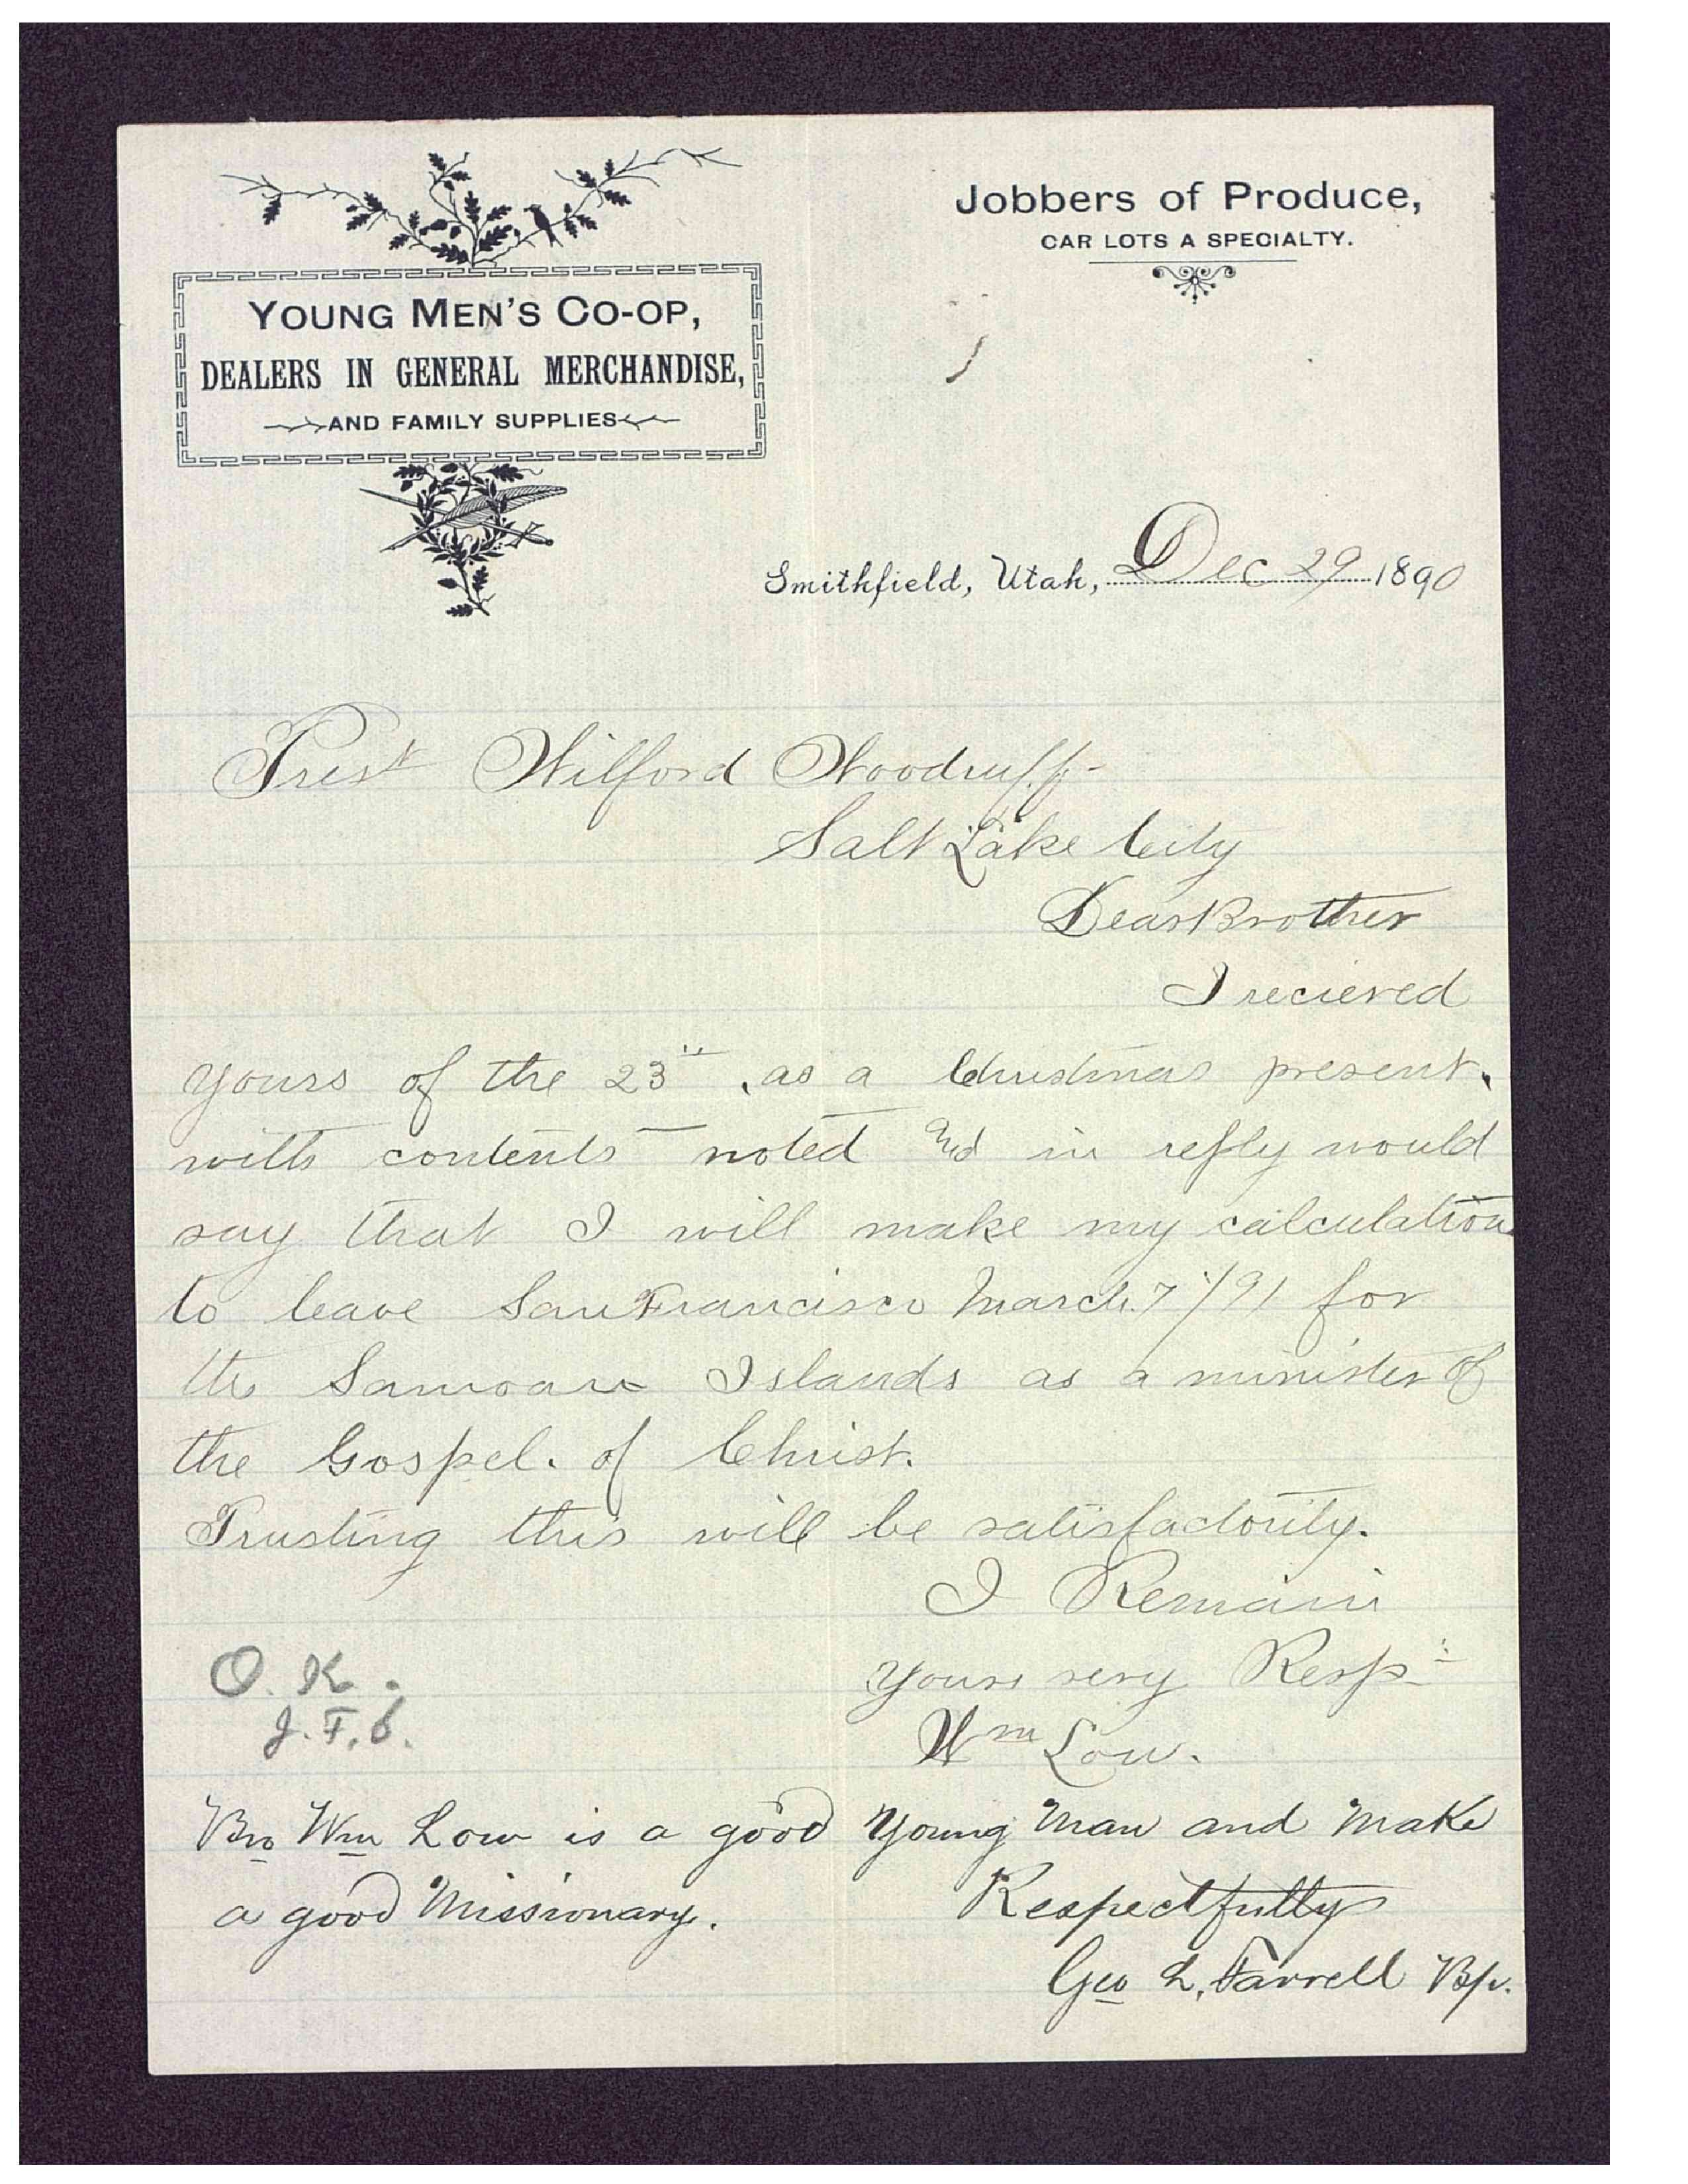 YOUNG MEN'S CO-OP,
DEALERS IN GENERAL MERCHANDISE,
AND FAMILY SUPPLIES
Jobbers of Produce,
CAR LOTS A SPECIALTY.
Smithfield, Utah, Dec 29 1890
Prest Wilford Woodruff-
Salt Lake City
Dear Brother
I recieved
yours of the 23" , as a Christmas present.
with contents noted And in reply would
say that I will make my calculation
to leave San Francisco March 7"/91 for
the Samoan Islands as a minister of
the Gospel. of Christ.
Trusting this will be satisfactorily.
I Remain
yours very Resp
Wm Low.
O. K.
J. F. S.
Bro Wm Low is a good Young Man and Make
a good Missionary.
Respectfully
Geo L. Farrell Bp.